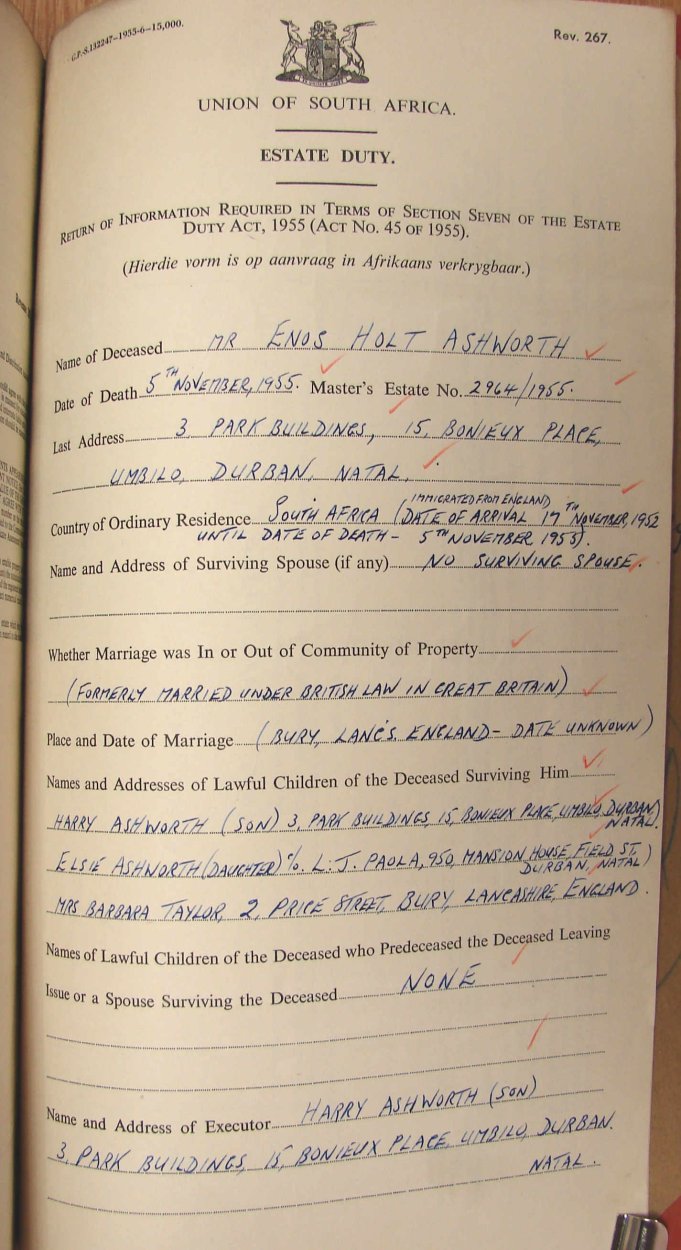 G.P.-S.132247-1955-6-15,000.
Rev. 267.
UNION OF SOUTH AFRICA.
ESTATE DUTY.
RETURN OF INFORMATION REQUIRED IN TERMS OF SECTION SEVEN OF THE ESTATE
DUTY ACT, 1955 (ACT NO. 45 OF 1955).
(Hierdie vorm is op aanvraag in Afrikaans verkrygbaar.)
Name of Deceased MR ENOS HOLT ASHWORTH
Date of Death 5TH NOVEMBER, 1955. Master's Estate No. 2964/1955.
Last Address 3, PARK BUILDINGS, 15, BONIEUX PLACE,
UMBILO, DURBAN, NATAL.
IMMIGRATED FROM ENGLAND
Country of Ordinary Residence SOUTH AFRICA (DATE OF ARRIVAL 17TH NOVEMBER, 1952
UNTIL DATE OF DEATH - 5TH NOVEMBER 1955).
Name and Address of Surviving Spouse (if any) NO SURVIVING SPOUSE.
Whether Marriage was In or Out of Community of Property
(FORMERLY MARRIED UNDER BRITISH LAW IN GREAT BRITAIN)
Place and Date of Marriage (BURY, LANCS. ENGLAND - DATE UNKNOWN)
Names and Addresses of Lawful Children of the Deceased Surviving Him
HARRY ASHWORTH (SON) 3, PARK BUILDINGS, 15, BONIEUX PLACE, UMBILO, DURBAN,
NATAL.
ELSIE ASHWORTH (DAUGHTER) c/o. L. J. PAOLA, 950, MANSION HOUSE, FIELD ST.
DURBAN, NATAL)
MRS BARBARA TAYLOR, 2, PRICE STREET, BURY, LANCASHIRE, ENGLAND.
Names of Lawful Children of the Deceased who Predeceased the Deceased Leaving
Issue or a Spouse Surviving the Deceased NONE
Name and Address of Executor HARRY ASHWORTH (SON)
3, PARK BUILDINGS, 15, BONIEUX PLACE, UMBILO, DURBAN.
NATAL.